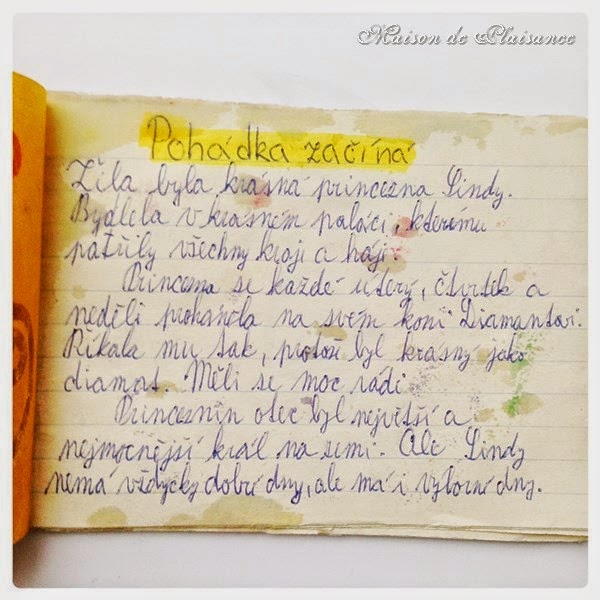 Maison de Plaisance
Pohádka začíná
Žila byla krásná princezna Lindy.
Bydlela v krásném paláci, kteremu
patřily všechny kraji a háji.
Princezna se každé uterý, čtvrtek a
neděli proháněla na svém koni Diamantovi.
Říkala mu tak, protože byl krásný jako
diamat. Měli se moc rádi
Princeznin otec byl největší a
nejmocnější král na zemi. Ale Lindy
nemá vždycky dobré dny, ale má i výborné dny.